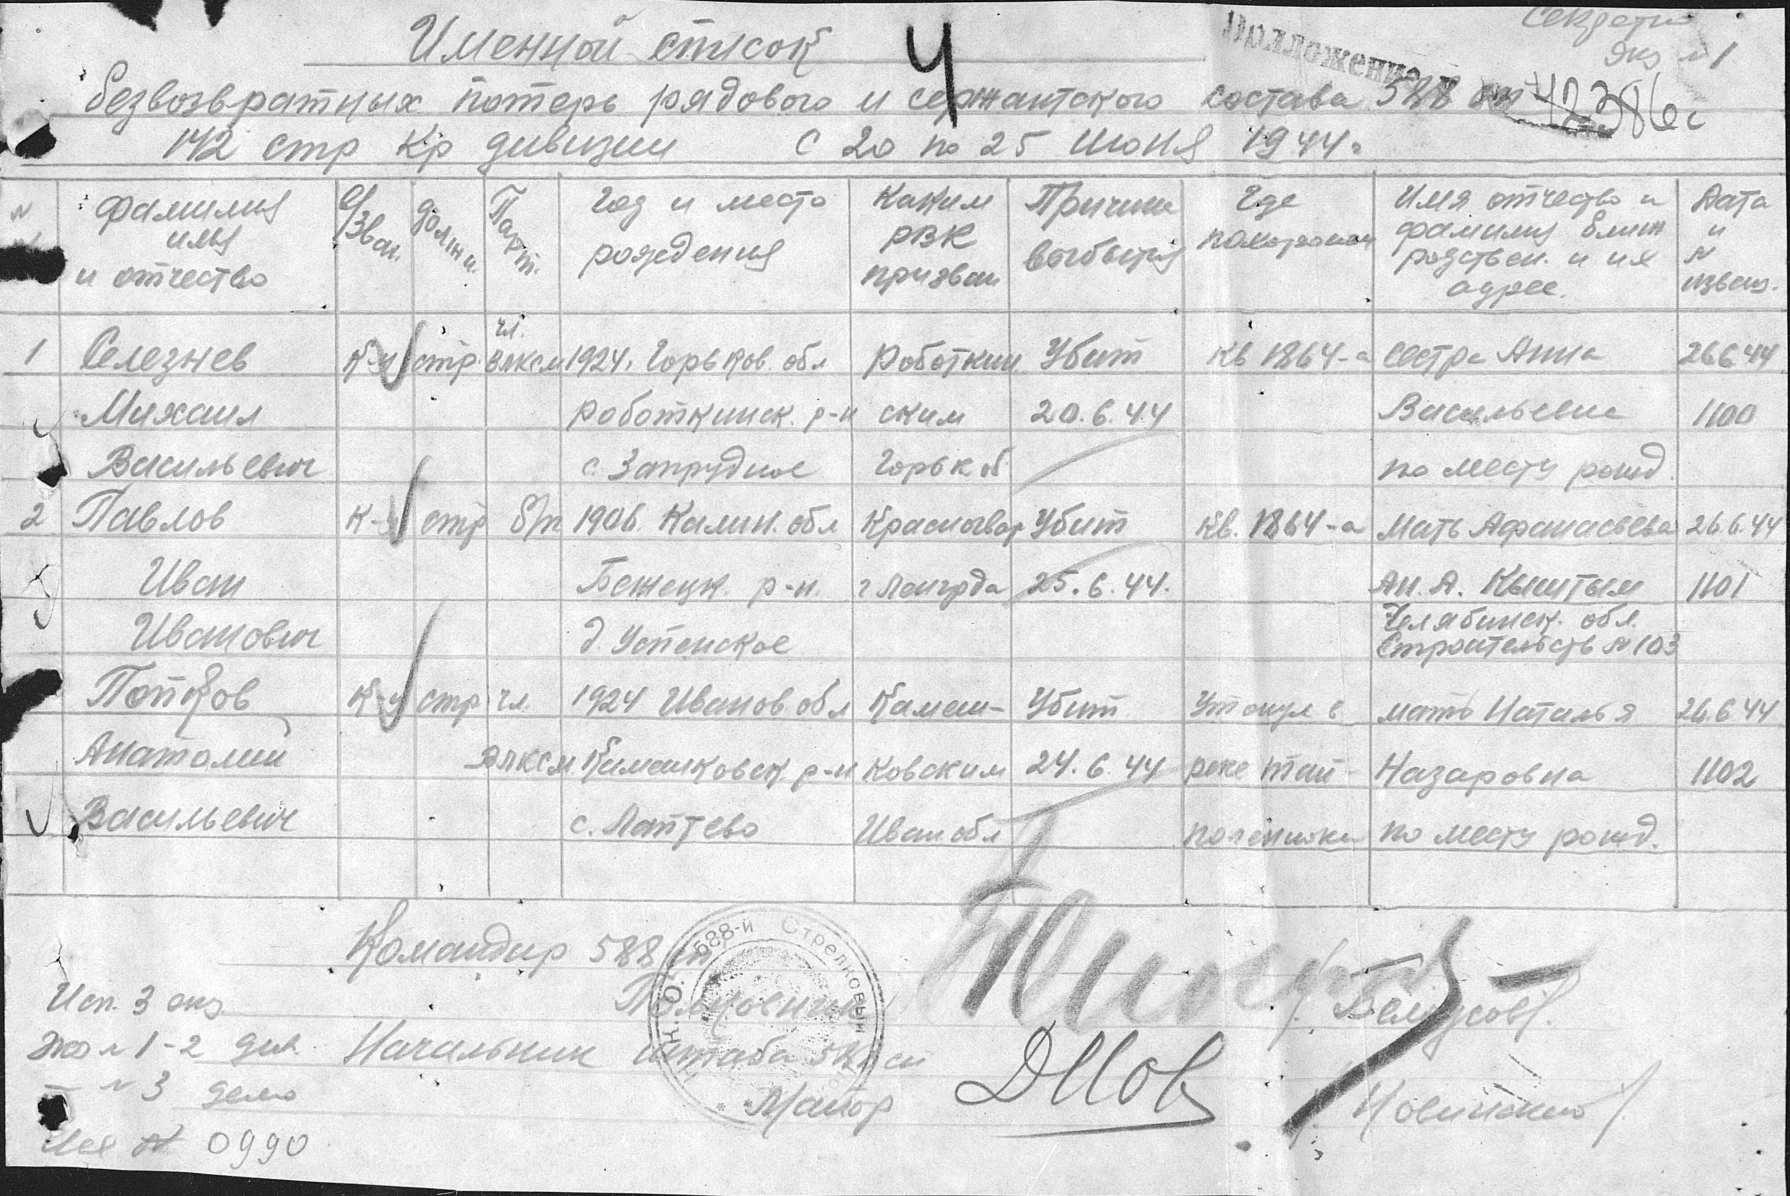 Секретно
Экз № 1
Именной список
Приложение
4
безвозвратных потерь рядового и сержантского состава 588 сп
42386с
142 стр Кр дивизии с 20 по 25 июня 1944г
N
фамилия имя и отчество
В/Зван.
Должн.
Парт.
Год и место рождения
Каким РВК призван
Причина выбытия
Где похоронен
Имя отчество и фамилия ближ родствен. и их адрес.
Дата и N извещ.
1 Селезнев к-ц стр. чл. влксм 1924, Горьков. обл Роботкин Убит кв 1864-а сестра Анна 26 6 44
Михаил Роботкинск. р-н ским 20.6.44 Васильевна 1100
Васильевич с. Запрудное Горьк об по месту рожд.
2 Павлов к-ц стр б/п 1906. Калин. обл Красногвар Убит кв. 1864-а мать Афанасьева 26.6.44
Иван Бежецк. р-н. г Ленгрда 25.6.44. Ан. А. Кыштым 1101
Иванович д. Успенское Челябинск. обл.
Строительств N 103
Попков к-ц стр чл 1924 Иванов обл Камеш- Убит Утонул в мать Наталья 26.6 44
Анатолий влксм Камешковск р-н ковским 24.6.44 реке Тай- Назаровна 1102
Васильевич с. Лаптево Иван обл поленйоки по месту рожд.
Командир 588 сп
588-й Стрелковый
Н.К.О.
Исп. 3 экз
Полковник
Белоусов/.
Экз N 1-2 див. Начальник штаба 588 сп
N 3 дело
Майор
Новинский/.
Исх N 0990